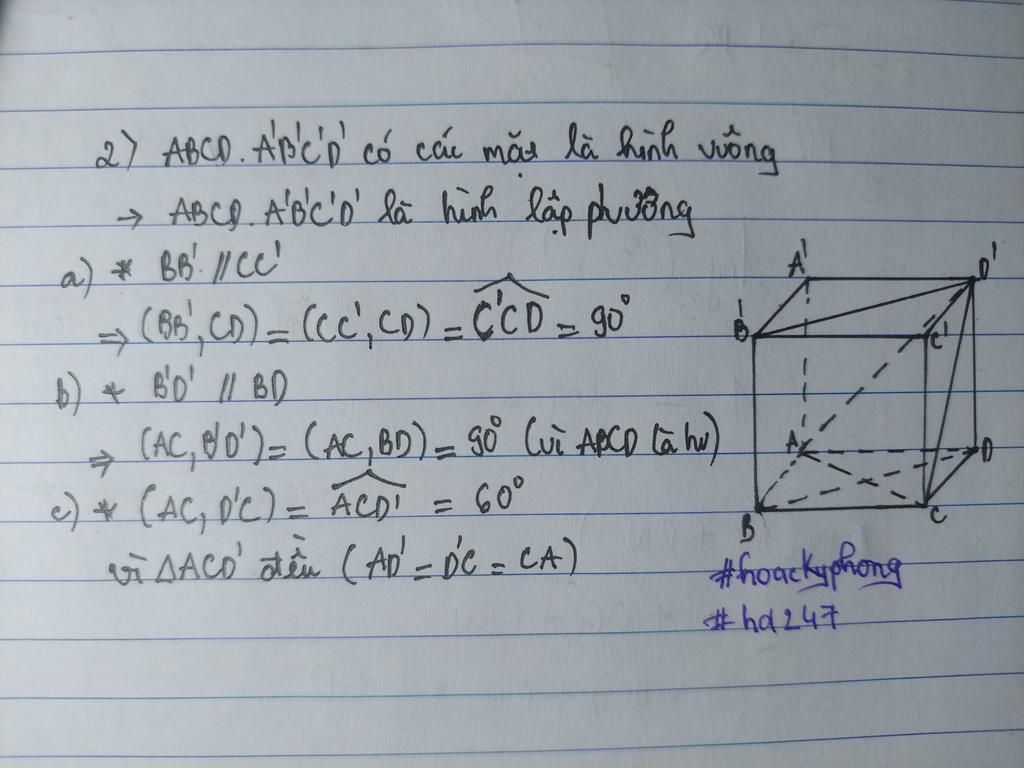 2) ABCD.A'B'C'D' có các mặt là hình vuông
→ ABCD.A'B'C'D' là hình lập phương
a) * BB' // CC'
⇒ (BB', CD) = (CC', CD) = C'CD = 90°
b) * B'D' // BD
⇒ (AC, B'D') = (AC, BD) = 90° (vì ABCD là hv)
c) * (AC, D'C) = ACD' = 60°
vì ΔACD' đều (AD' = D'C = CA)
A'
D'
B'
C'
A
D
B
C
#hoackyphong
#hd247